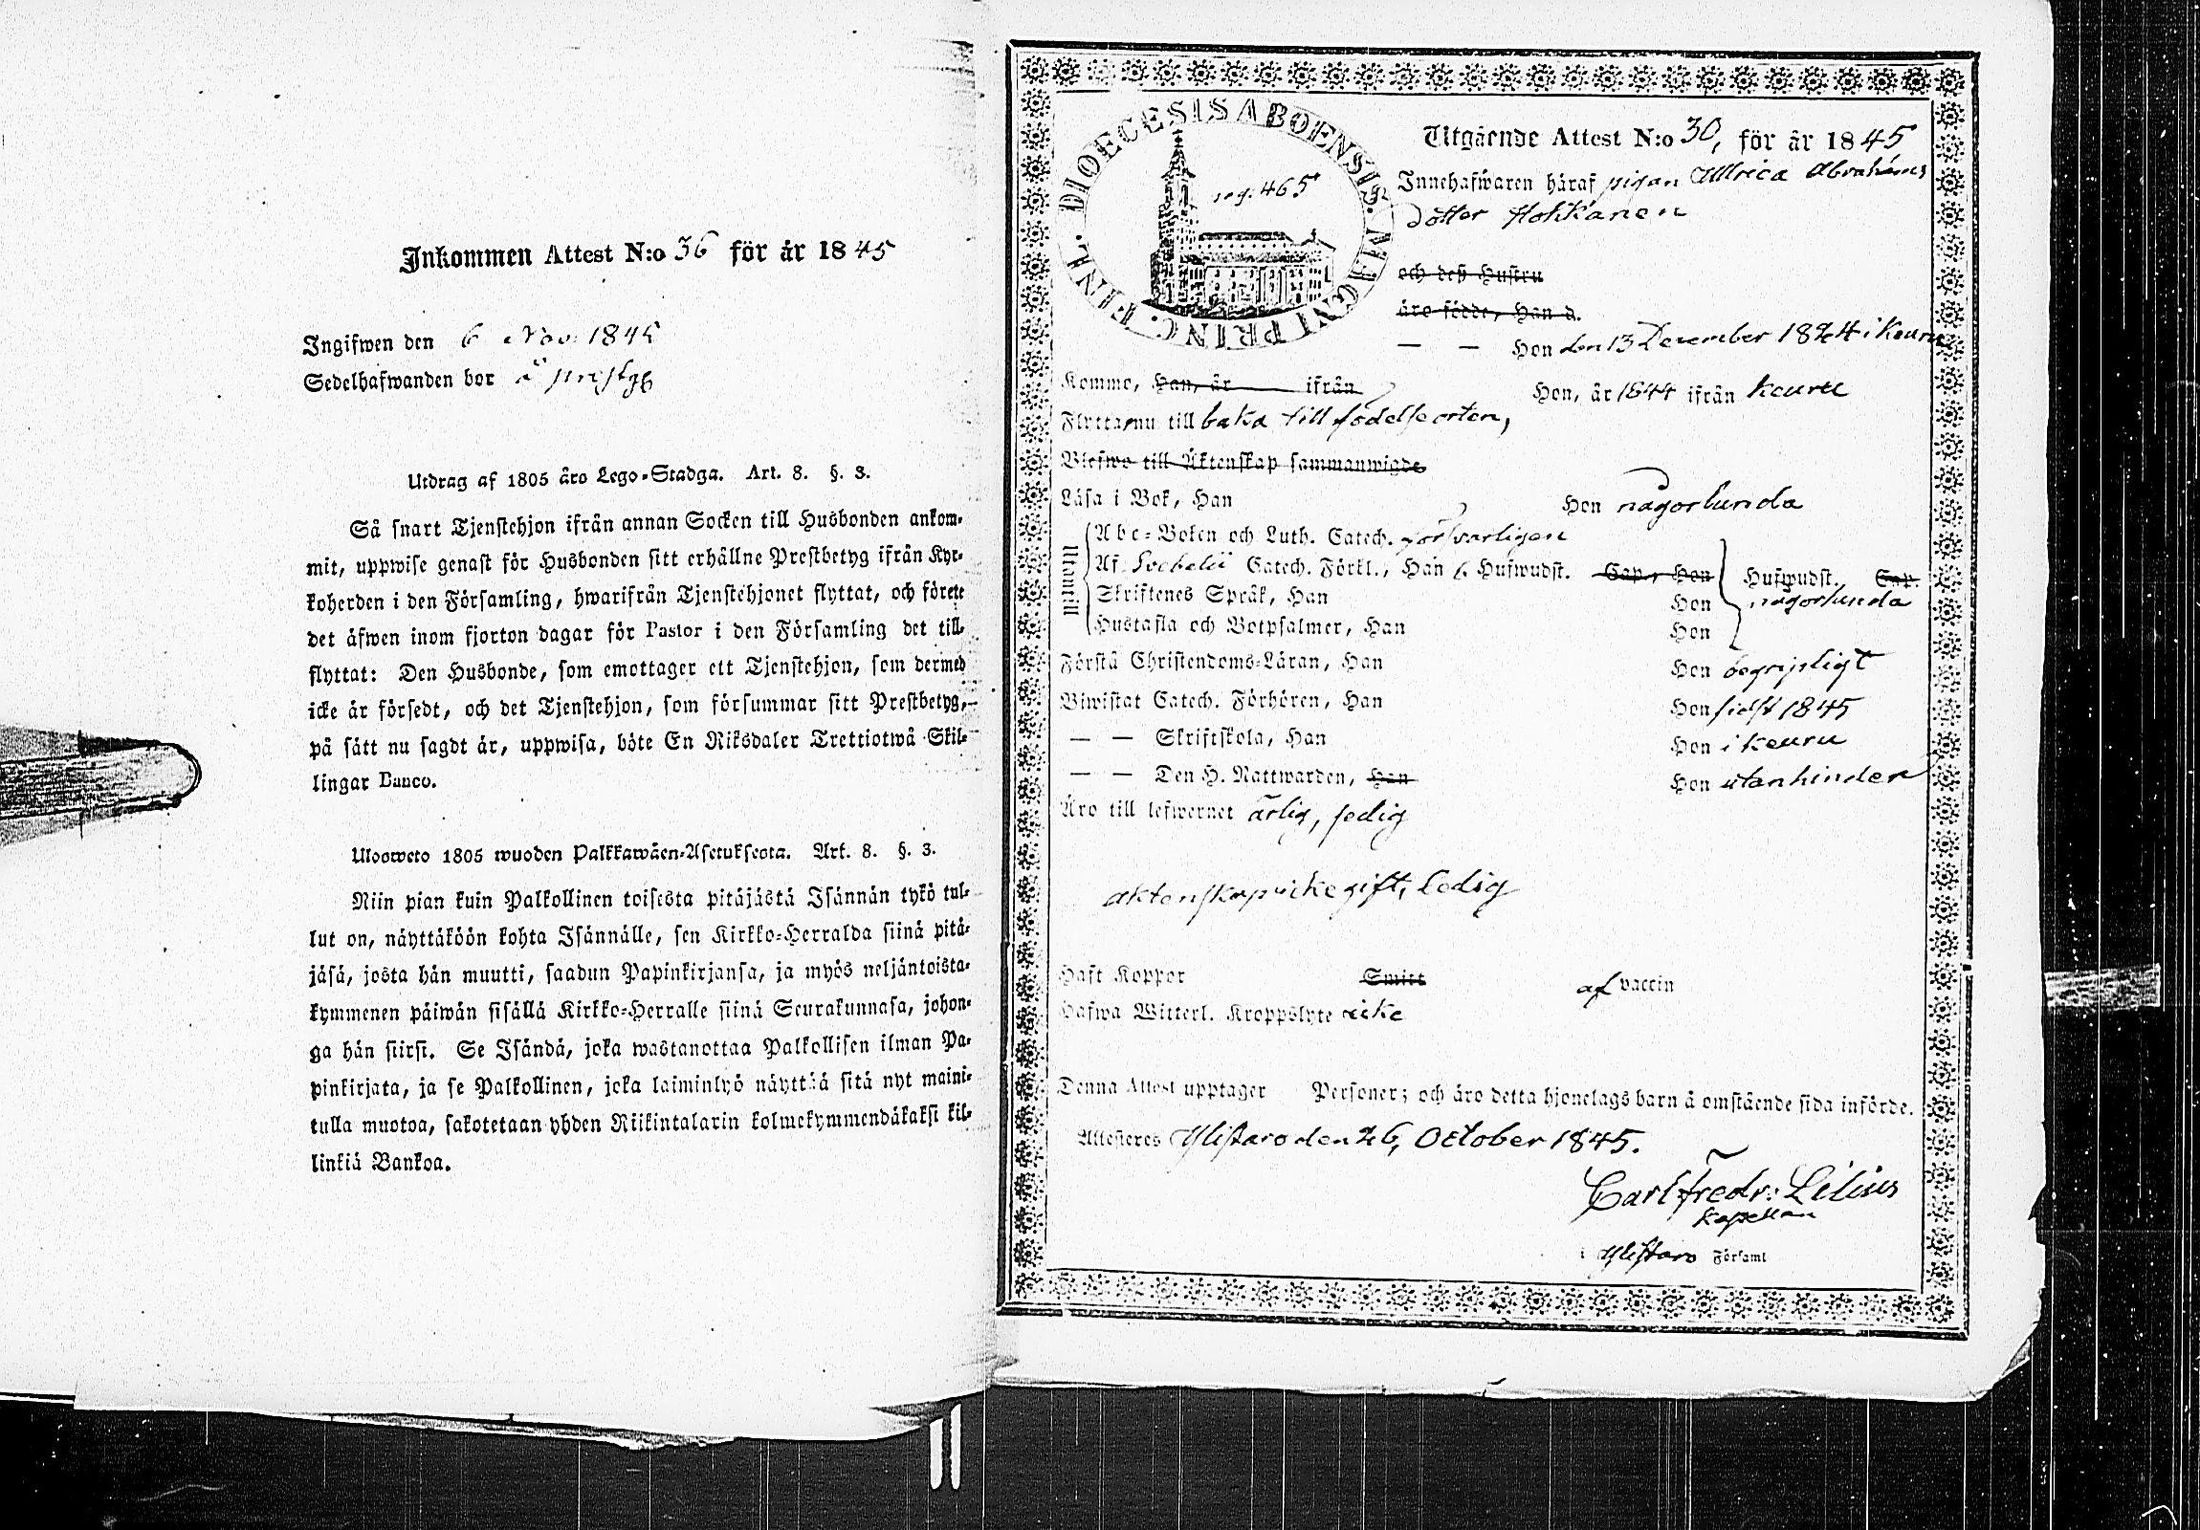 Inkommen Attest N:o 36 för år 1845
Ingifwen den 6 Nov. 1845
Sedelhafwanden bor å
Utdrag af 1805 åro Lego-Stadga. Art. 8. §. 3.
Så snart Tjenstehjon ifrån annan Socken till Husbonden ankom-
mit, uppwise genast för Husbonden sitt erhållne Prestbetyg ifrån Kyr-
koherden i den Församling, hwarifrån Tjenstehjonet flyttat, och förete
det äfwen inom fjorton dagar för Pastor i den Församling det till-
flyttat: Den Husbonde, som emottager ett Tjenstehjon, som dermed
icke är försedt, och det Tjenstehjon, som försummar sitt Prestbetyg,
på sätt nu sagdt är, uppwisa, böte En Riksdaler Trettiotwå Skil-
lingar Banco.
Ulosweto 1805 wuoden Palkkawäen-Asetuksesta. Art. 8. §. 3.
Niin pian kuin Palkollinen toisesta pitäjästä Isännän tykö tul-
lut on, näyttäköön kohta Isännälle, sen Kirkko-Herralda siinä pitä-
jäsä, josta hän muutti, saadun Papinkirjansa, ja myös neljäntoista-
kymmenen päiwän sisällä Kirkko-Herralle siinä Seurakunnasa, johon-
ga hän siirsi. Se Isändä, joka wastanottaa Palkollisen ilman Pa-
pinkirjata, ja se Palkollinen, joka laiminlyö näyttää sitä nyt maini-
tulla muotoa, sakotetaan yhden Riikintalarin kolmekymmendäkaksi kil-
linkiä Bankoa.
DIOECESIS ABOENSIS. MAGNI PRINC. FINL.
pag. 465
Utgående Attest N:o 30, för år 1845
Innehafwaren häraf pigan Ullrica Abrahams
dotter Hokkanen
och deß Hustru
äro födde, Han d.
— — Hon den 13 December 1824 i Keuru
Komme, Han, år ifrån Hon, år 1844 ifrån Keuru
Flytta nu till baka till födelseorten,
Blefwo till Äktenskap sammanwigde
Läsa i Bok, Han Hon någorlunda
Utantill
Abc-Boken och Luth. Catech. försvarligen
Af Svebelii Catech. Förkl., Han 6. Hufwudst. Cap., Hon Hufwudst. Cap.
Skriftenes Språk, Han Hon någorlunda
Hustafla och Botpsalmer, Han Hon
Förstå Christendoms-Läran, Han Hon begripligt
Biwistat Catech. Förhören, Han Hon sidst 1845
— — Skriftskola, Han Hon i Keuru
— — Den H. Nattwarden, Han Hon utan hinder
Äro till lefwernet ärlig, sedig
äktenskap icke gift, ledig
Haft Koppor Smitt af vaccin
Hafwa Witterl. Kroppslyte icke
Denna Attest upptager Personer; och äro detta hjonelags barn å omstående sida införde.
Attesteres Ylistaro den 26, October 1845.
Carl Fredr: Lilius
Kapellan
i Ylistaro Församl